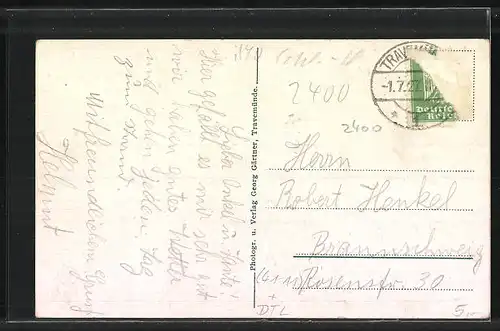 Lieber Onkel u. Tante!
Hier gefällt es mir sehr gut
wir haben gutes Wetter
und gehen jeden Tag
zum Strand.
Mit freundlichem Gruß
Helmut
Photogr. u. Verlag Georg Gärtner, Travemünde.
2400
2400
TRAVEMÜNDE
-1.7.27
Deutsches
Reich
Herrn
Robert Henkel
Braunschweig
Rosenstr. 30
DTL
5,-